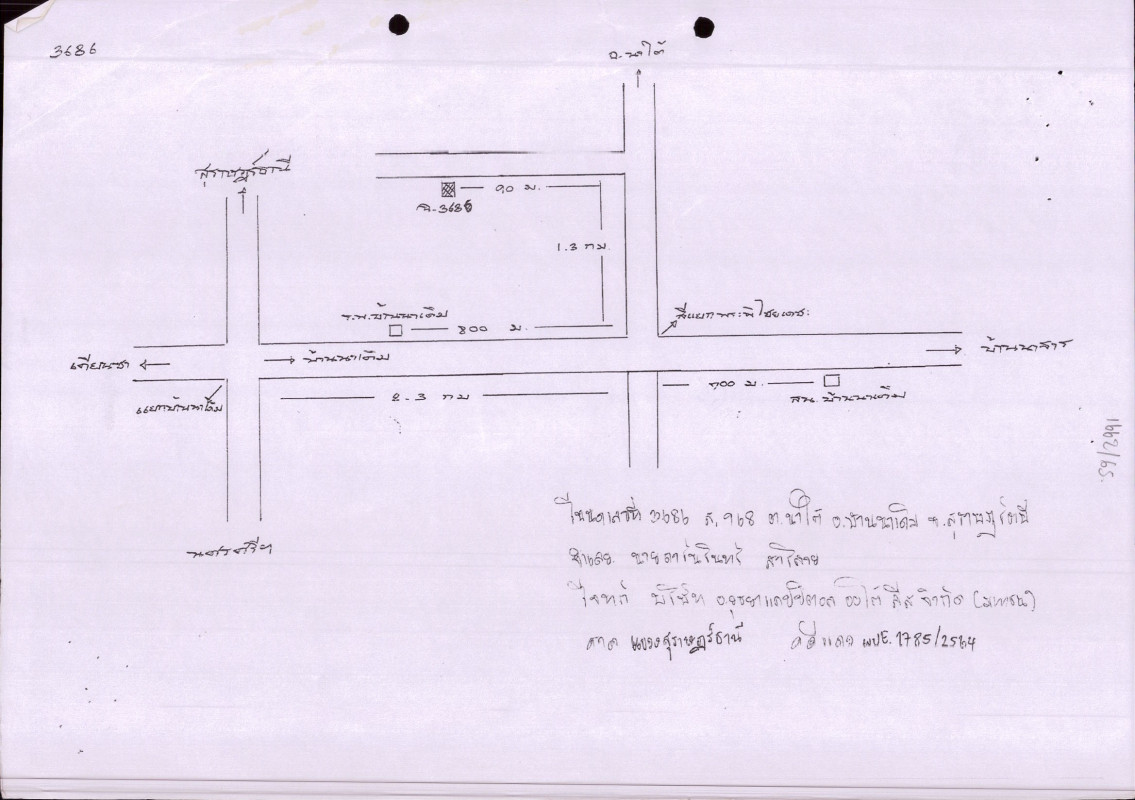 3686
ต.นาใต้
สุราษฎร์ธานี
90 ม.
น-3686
1.3 กม.
ร.พ.บ้านนาเดิม
800 ม.
สี่แยกพระพิชัยเดชะ
เคียนซา
บ้านนาเดิม
บ้านนาสาร
แยกบ้านนาเดิม
2.3 กม
700 ม.
สน.บ้านนาเดิม
1662/65
นครศรีฯ
โฉนดเลขที่ 3686 ต.นาใต้ อ.บ้านนาเดิม จ.สุราษฎร์ธานี
จำเลย นาย
โจทก์ บริษัท อยุธยา แคปปิตอล ออโต้ ลีส จำกัด (มหาชน)
ศาล แขวงสุราษฎร์ธานี คดีแดง ผบE.1785/2564